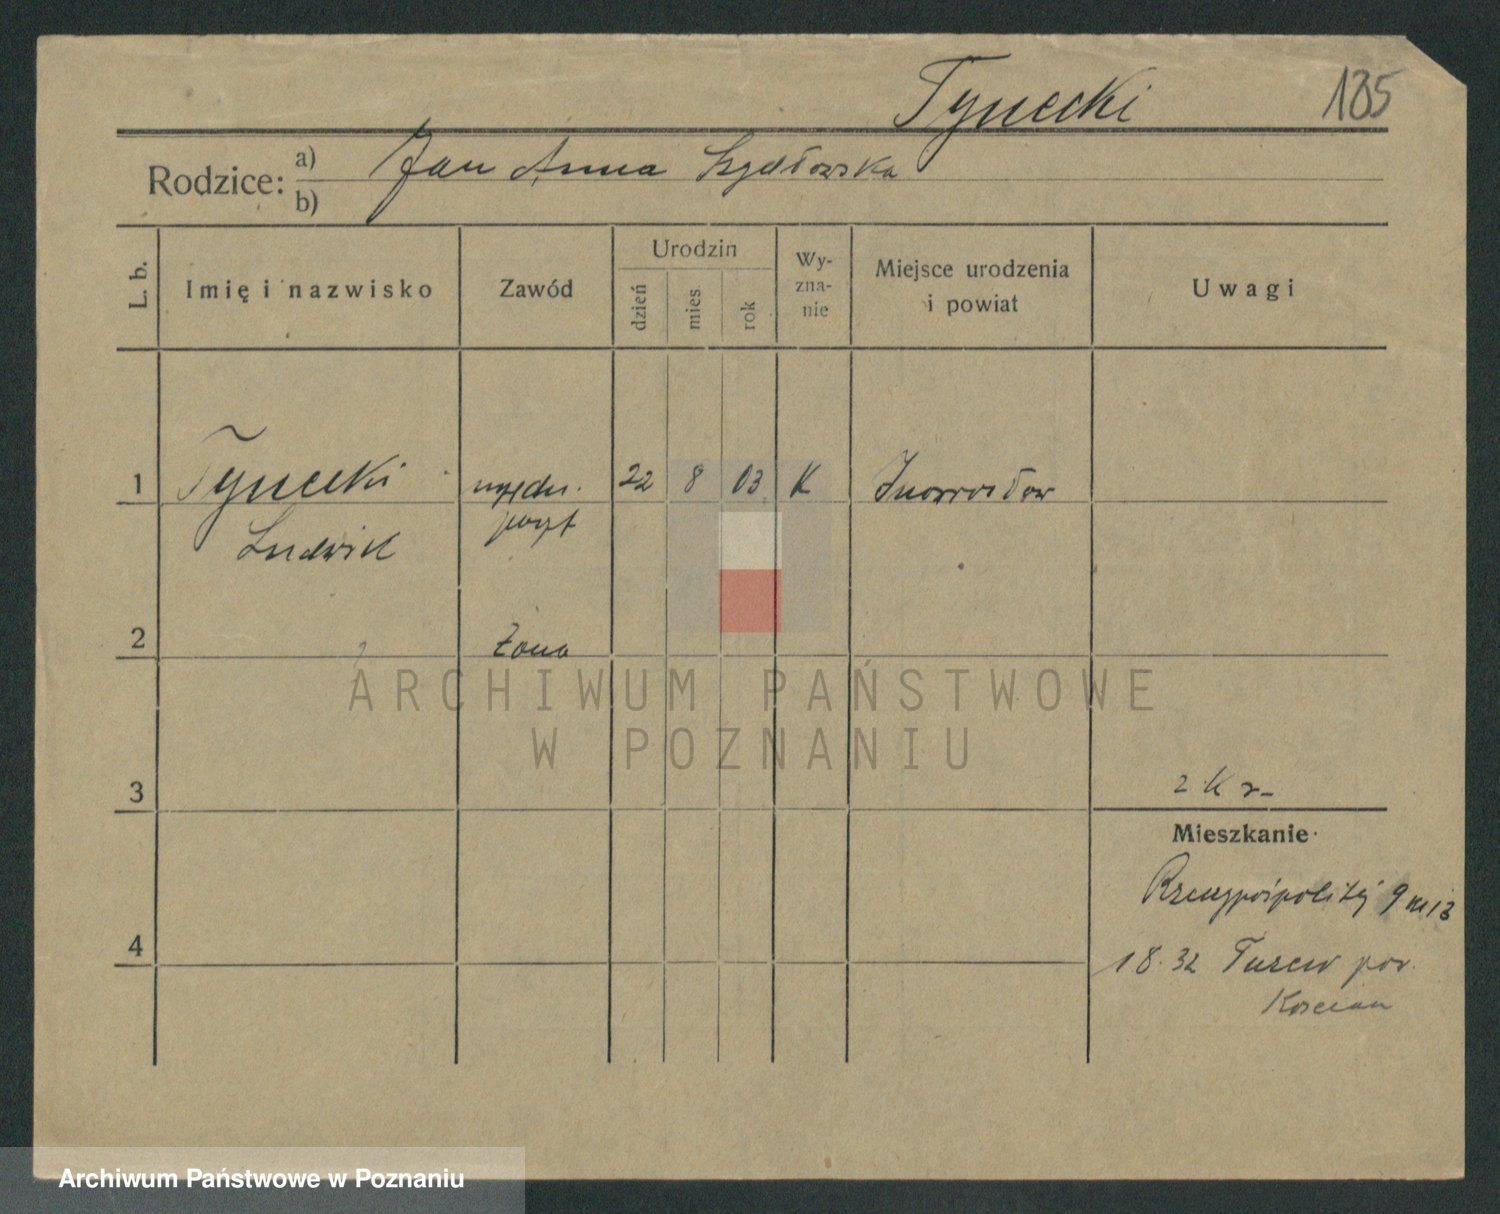 Tynecki
185
Rodzice:
a) Jan Anna Szydłowska
b)
L. b.
Imię i nazwisko
Zawód
Urodzin
dzień
mies.
rok
Wy-
zna-
nie
Miejsce urodzenia
i powiat
Uwagi
1
Tynecki
Ludwik
urzędn.
poczt
22
8
03
K
Inowrocław
2
Żona
ARCHIWUM PAŃSTWOWE
W POZNANIU
3
Mieszkanie
Rzeczypospolitej 9 m 13
18. 32 Turew pow.
Koscian
4
Archiwum Państwowe w Poznaniu